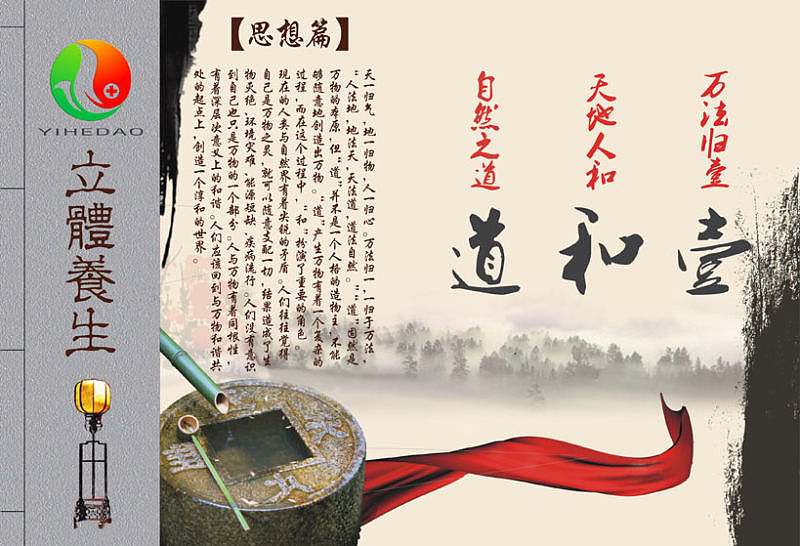 【思想篇】
万法归壹
天地人和
自然之道
壹
和
道
天一归气，地一归物，人一归心。万法归一，一归于万法，
“人法地，地法天，天法道，道法自然。”“道”固然是
万物的本原，但“道”并不是一个人格的造物主，不能
够随意地创造出万物。“道”产生万物有着一个复杂的
过程，而在这个过程中，“和”扮演了重要的角色。
现在的人类与自然界有着尖锐的矛盾。人们往往觉得
自己是万物之灵，就可以随意支配一切，结果造成了生
物灭绝，环境灾难，能源短缺，疾病流行。人们没有意识
到自己也只是万物的一个部分。人与万物有着同根性，
有着深层次意义上的和谐。人们应该回到与万物和谐共
处的起点上，创造一个淳和的世界。
YIHEDAO
立體養生